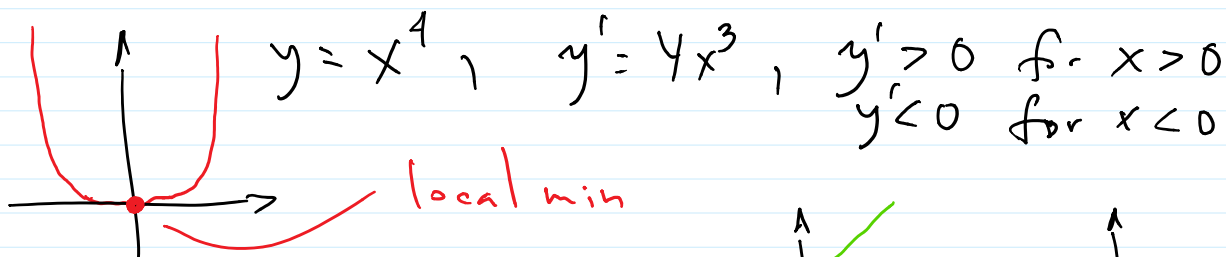 y = x⁴, y' = 4x³, y' > 0 for x > 0
y' < 0 for x < 0
local min